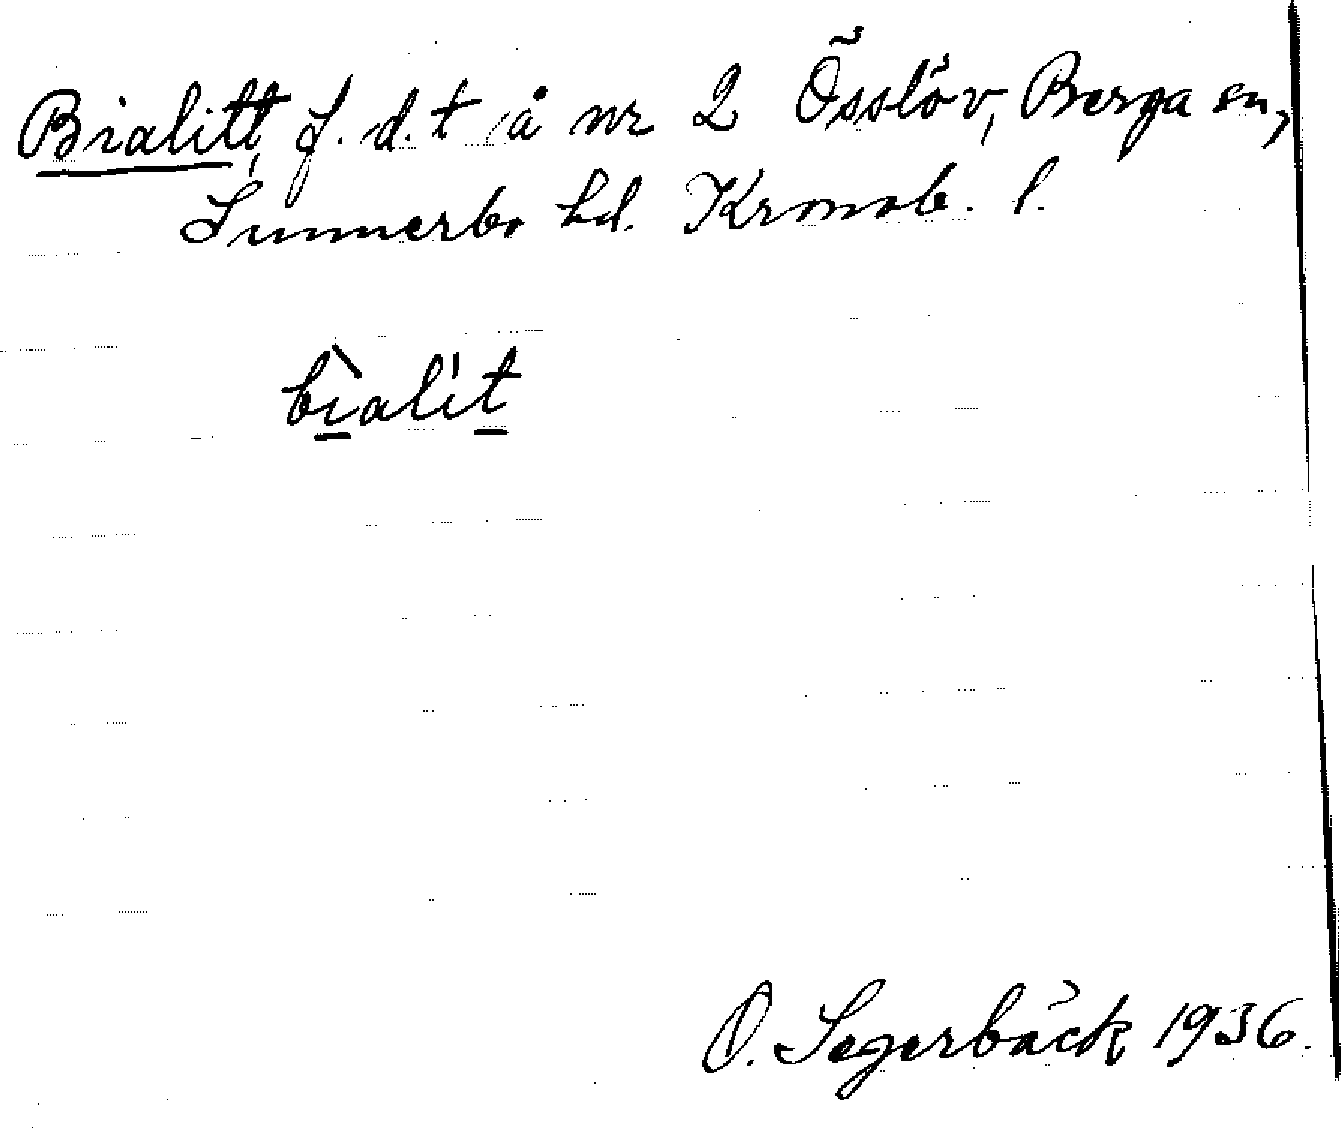 Bialitt, f. d. t å nr 2 Össlöv, Berga sn,
Sunnerbo hd. Kronob. l.
bìalit
O. Segerbäck 1936.